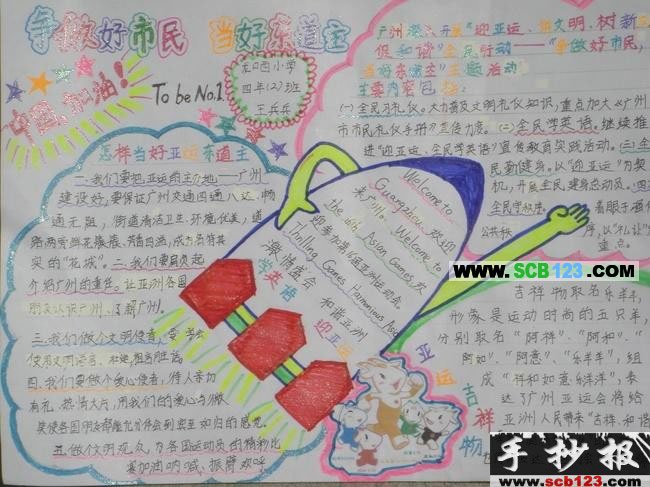 争做好市民 当好东道主
中国加油!
To be No.1
四年(2)班
王兵兵
怎样当好亚运东道主
一.我们要把亚运的主办地——广州
建设好,要保证广州交通四通八达,畅
通无阻,街道清洁卫生,环境优美,道
路两旁鲜花
实的"花城"。二.我们要肩负起
介绍广州的重任。让亚洲各国
朋友认识广州、了解广州。
三.我们做个文明使者,要学会
使用文明语言
四.我们要做个爱心使者,待人亲切
有礼,热情大方,用我们的爱心与微
笑使各国朋友都能充分体会到宾至如归的感觉。
五.做个文明观众,为各国运动员的精彩比
赛加油呐喊、振臂欢呼
Welcome to
Guangzhou,欢迎
来广州。Welcome to
the 16th Asian Games,欢
迎参加第16届亚洲运动会。
Thrilling Games Harmonious Asia
激情盛会 和谐亚洲
学英格
迎亚运
广州深入开展"迎亚运、讲文明、树新
促和谐"全民行动——"争做好市民,
当好东道主"主题活动
主要内容包括:
(一)全民习礼仪。大力普及文明礼仪知识,重点加大《广州
市市民礼仪手册》宣传力度。(二)全民学英语。继续推
进"迎亚运、全民学英语"宣传教育实践活动。(三)全
民勤健身。以"迎亚运"为契
机,开展全民健身总动员。(四)
全民守秩序。着眼于强化
公共秩
重点。
www.SCB123.com
吉祥物取名乐羊羊,
形象是运动时尚的五只羊,
分别取名"阿祥"、"阿和"、"
阿如"、"阿意"、"乐羊羊",组
成"祥和如意乐洋洋",表
达了广州亚运会将给
亚洲人民带来"吉祥、和谐
亚运吉祥物
手抄报
www.scb123.com